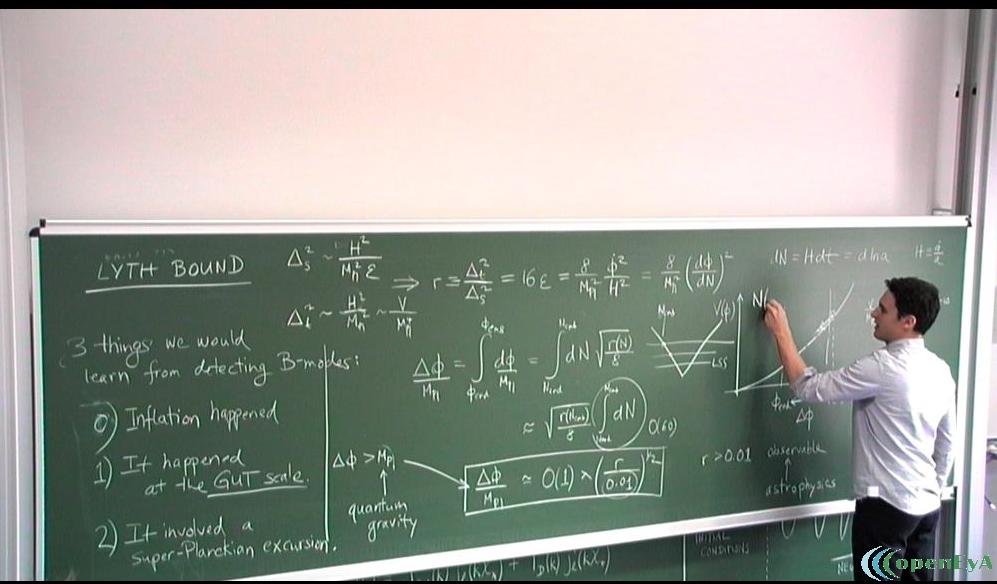 LYTH BOUND
Δ_s² ~ H²/(M_pl² ε)
Δ_t² ~ H²/M_pl² ~ V/M_pl⁴
⇒ r ≡ Δ_t²/Δ_s² = 16ε = 8/M_pl² φ̇²/H² = 8/M_pl² (dφ/dN)²
dN = Hdt = dlna
H = ȧ/a
3 things we would
learn from detecting B-modes:
0) Inflation happened
1) It happened
at the GUT scale.
2) It involved a
super-Planckian excursion.
Δφ/M_pl = ∫ dφ/M_pl = ∫ dN √(r(N)/8)
≈ √(r(N_cmb)/8) ∫ dN O(60)
Δφ/M_pl ≈ O(1) × (r/0.01)^(1/2)
Δφ > M_pl
↑
quantum
gravity
LSS
V(φ)
N
φ_end
Δφ
r > 0.01 observable
↑
astrophysics
INITIAL
CONDITIONS